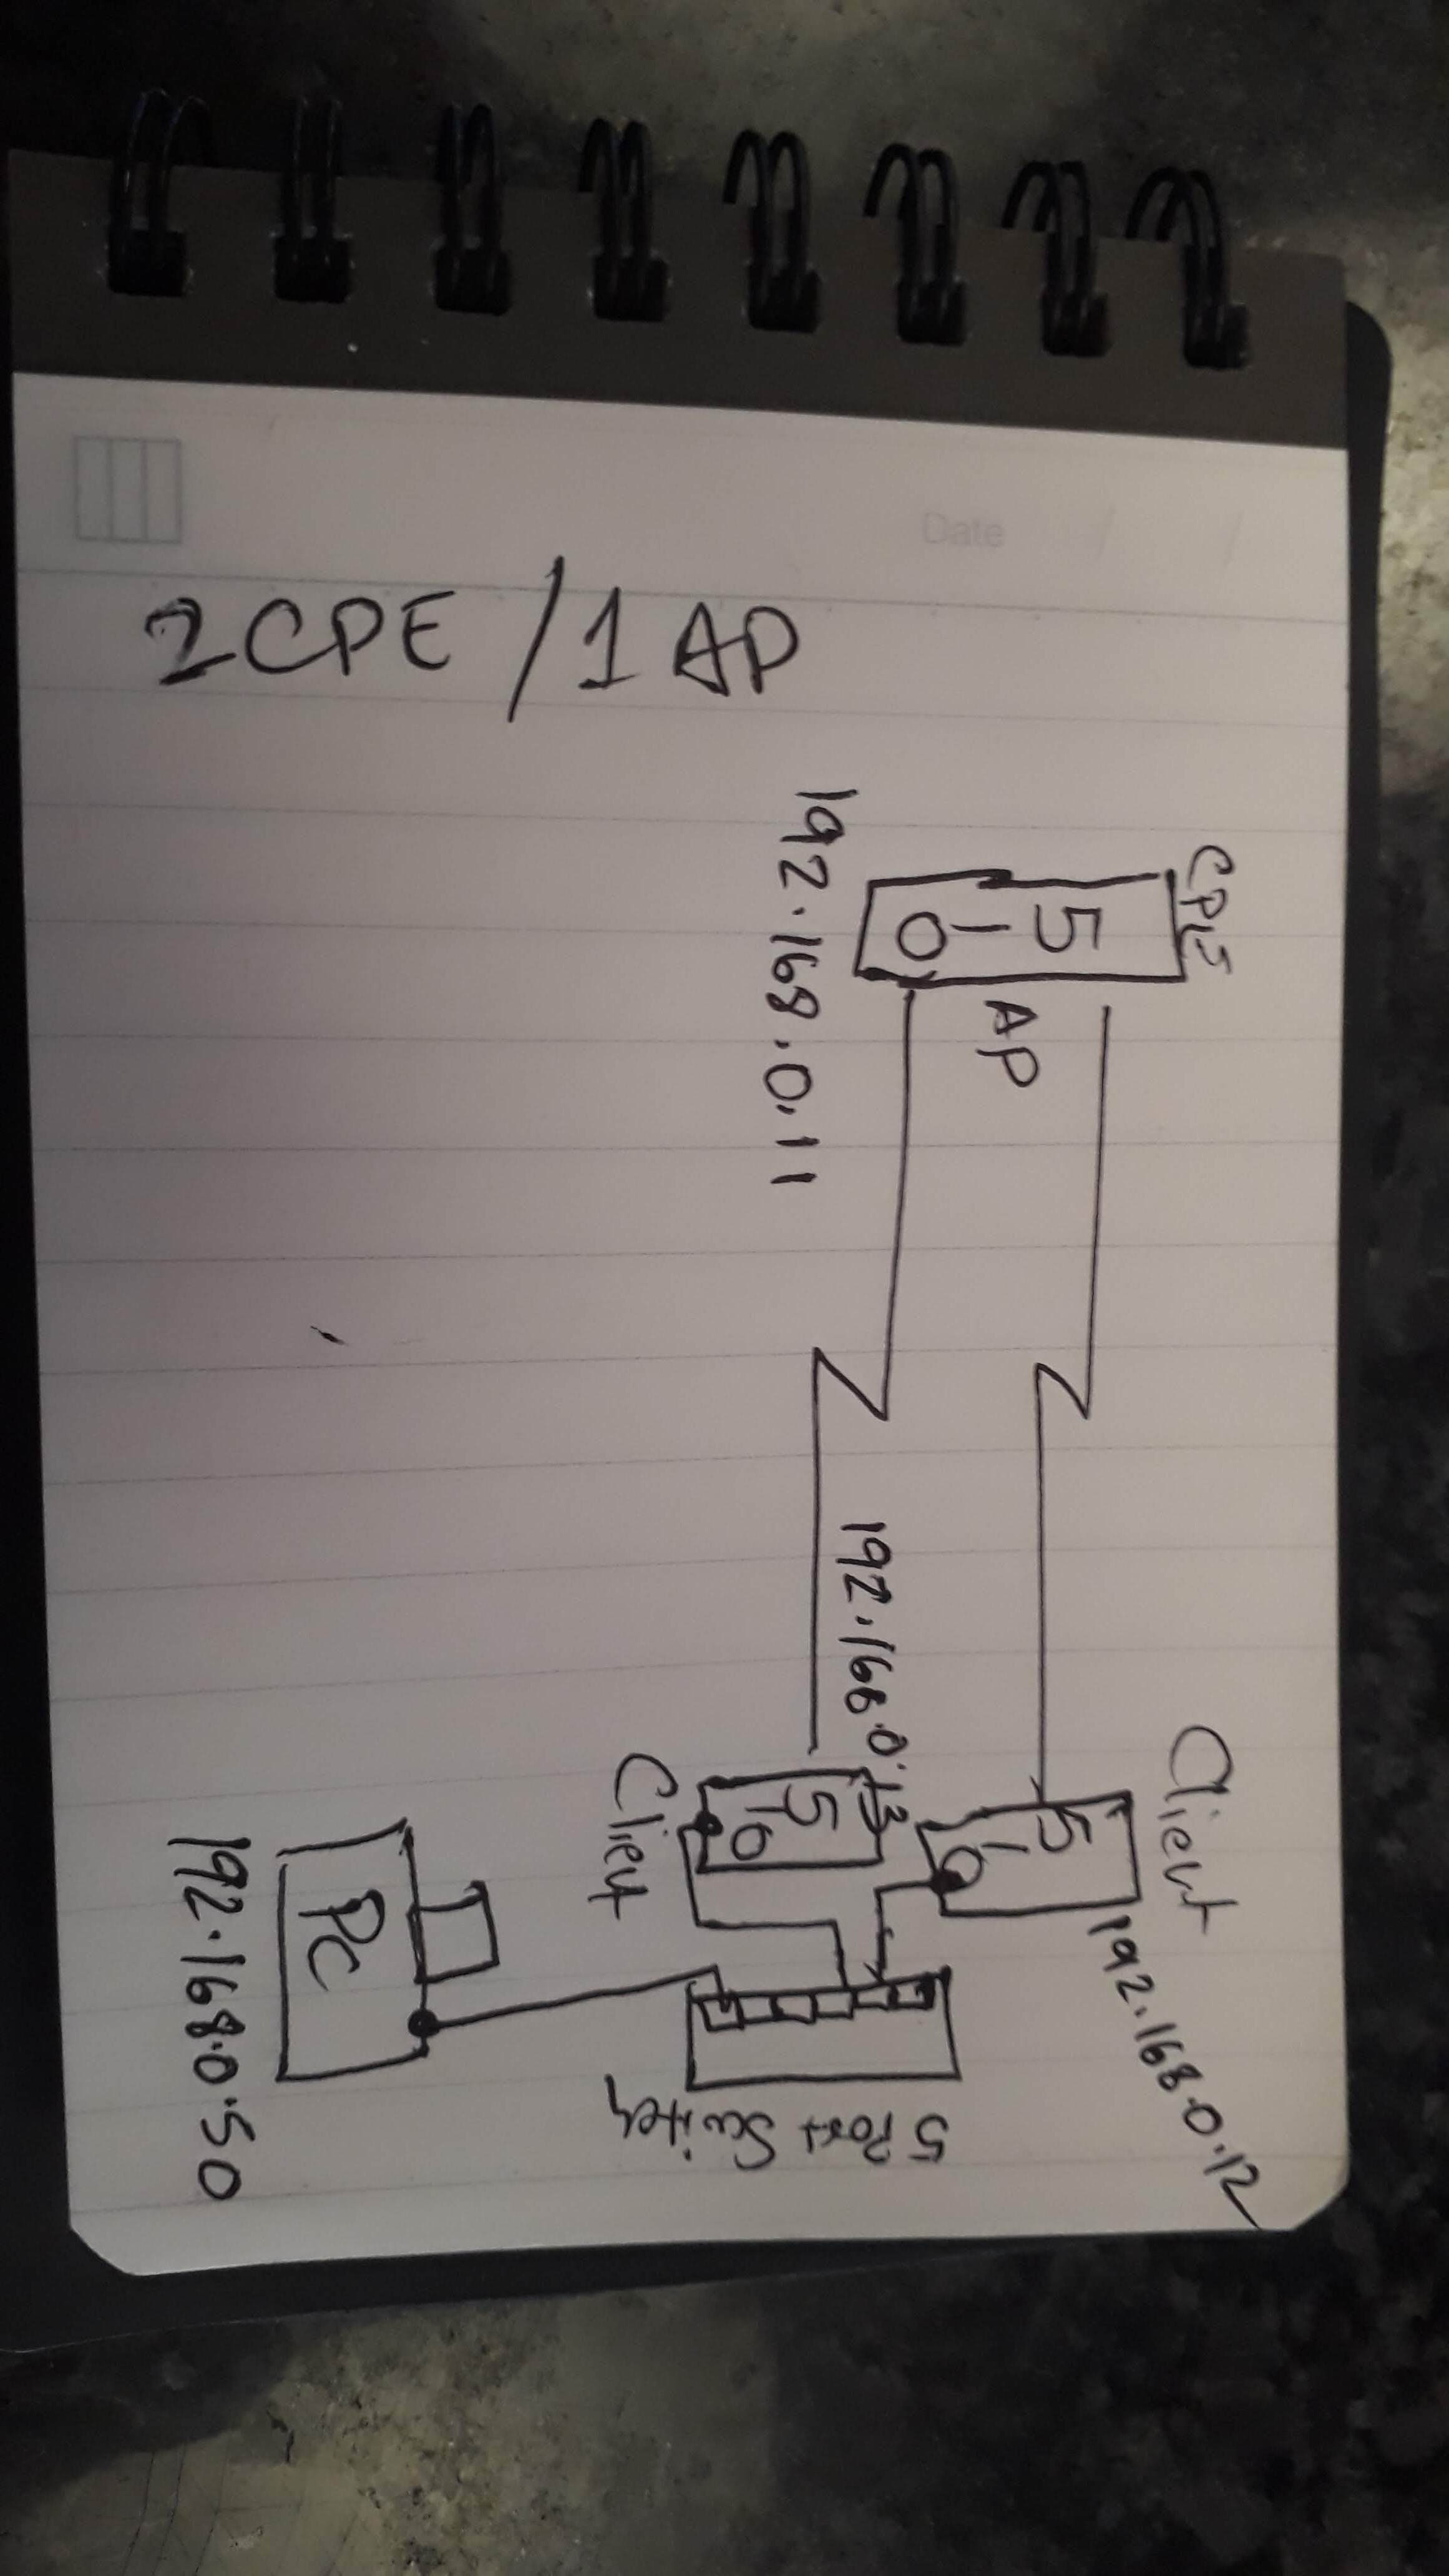 Date / /
2 CPE / 1 AP
192.168.0.11
5
1
0
AP
Client
192.168.0.12
5
1
0
192.168.0.13
5
10
Client
5 Port Switch
PC
192.168.0.50